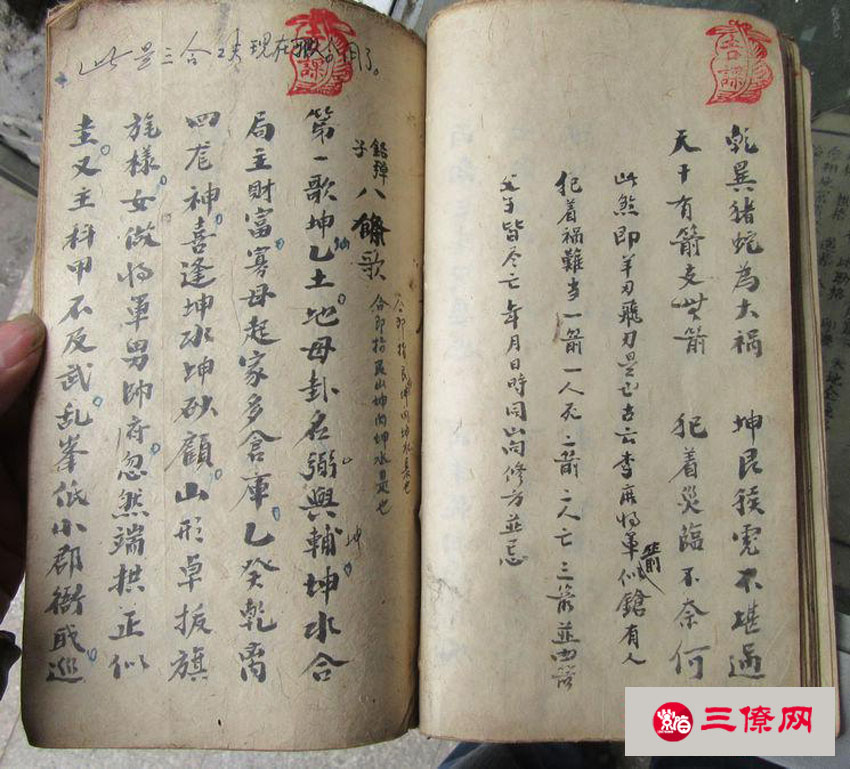 乾巽猪蛇為大禍　坤艮猴虎不堪過
天干有箭支無箭　犯着災臨不奈何
此煞即羊刃飛刃是也古云李廣将軍箭似鎗有人
犯着禍難當一箭一人死二箭二人亡三箭並四箭
父子皆尽亡年月日時同山向修方並忌
鉛彈子八條歌
合即指艮山坤向坤水是也
第一歌坤乙土地母卦名弼與輔坤水合
局主財富寡母起家多倉庫乙癸乾离
四龙神喜逢坤水坤砂顧山形卓拔旗
旄樣女做将軍男帥府忽然端拱正似
圭又主科甲不及武乱峯低小郡衙或巡
此是三合法现在
用了。
吉課
三僚网